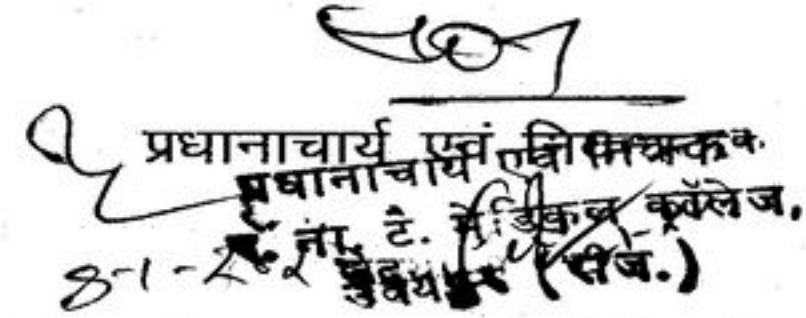 प्रधानाचार्य एवं नियन्त्रक
प्रधानाचार्य एवं नियन्त्रक
र. ना. टै. मेडिकल कॉलेज,
उदयपुर (राज.)